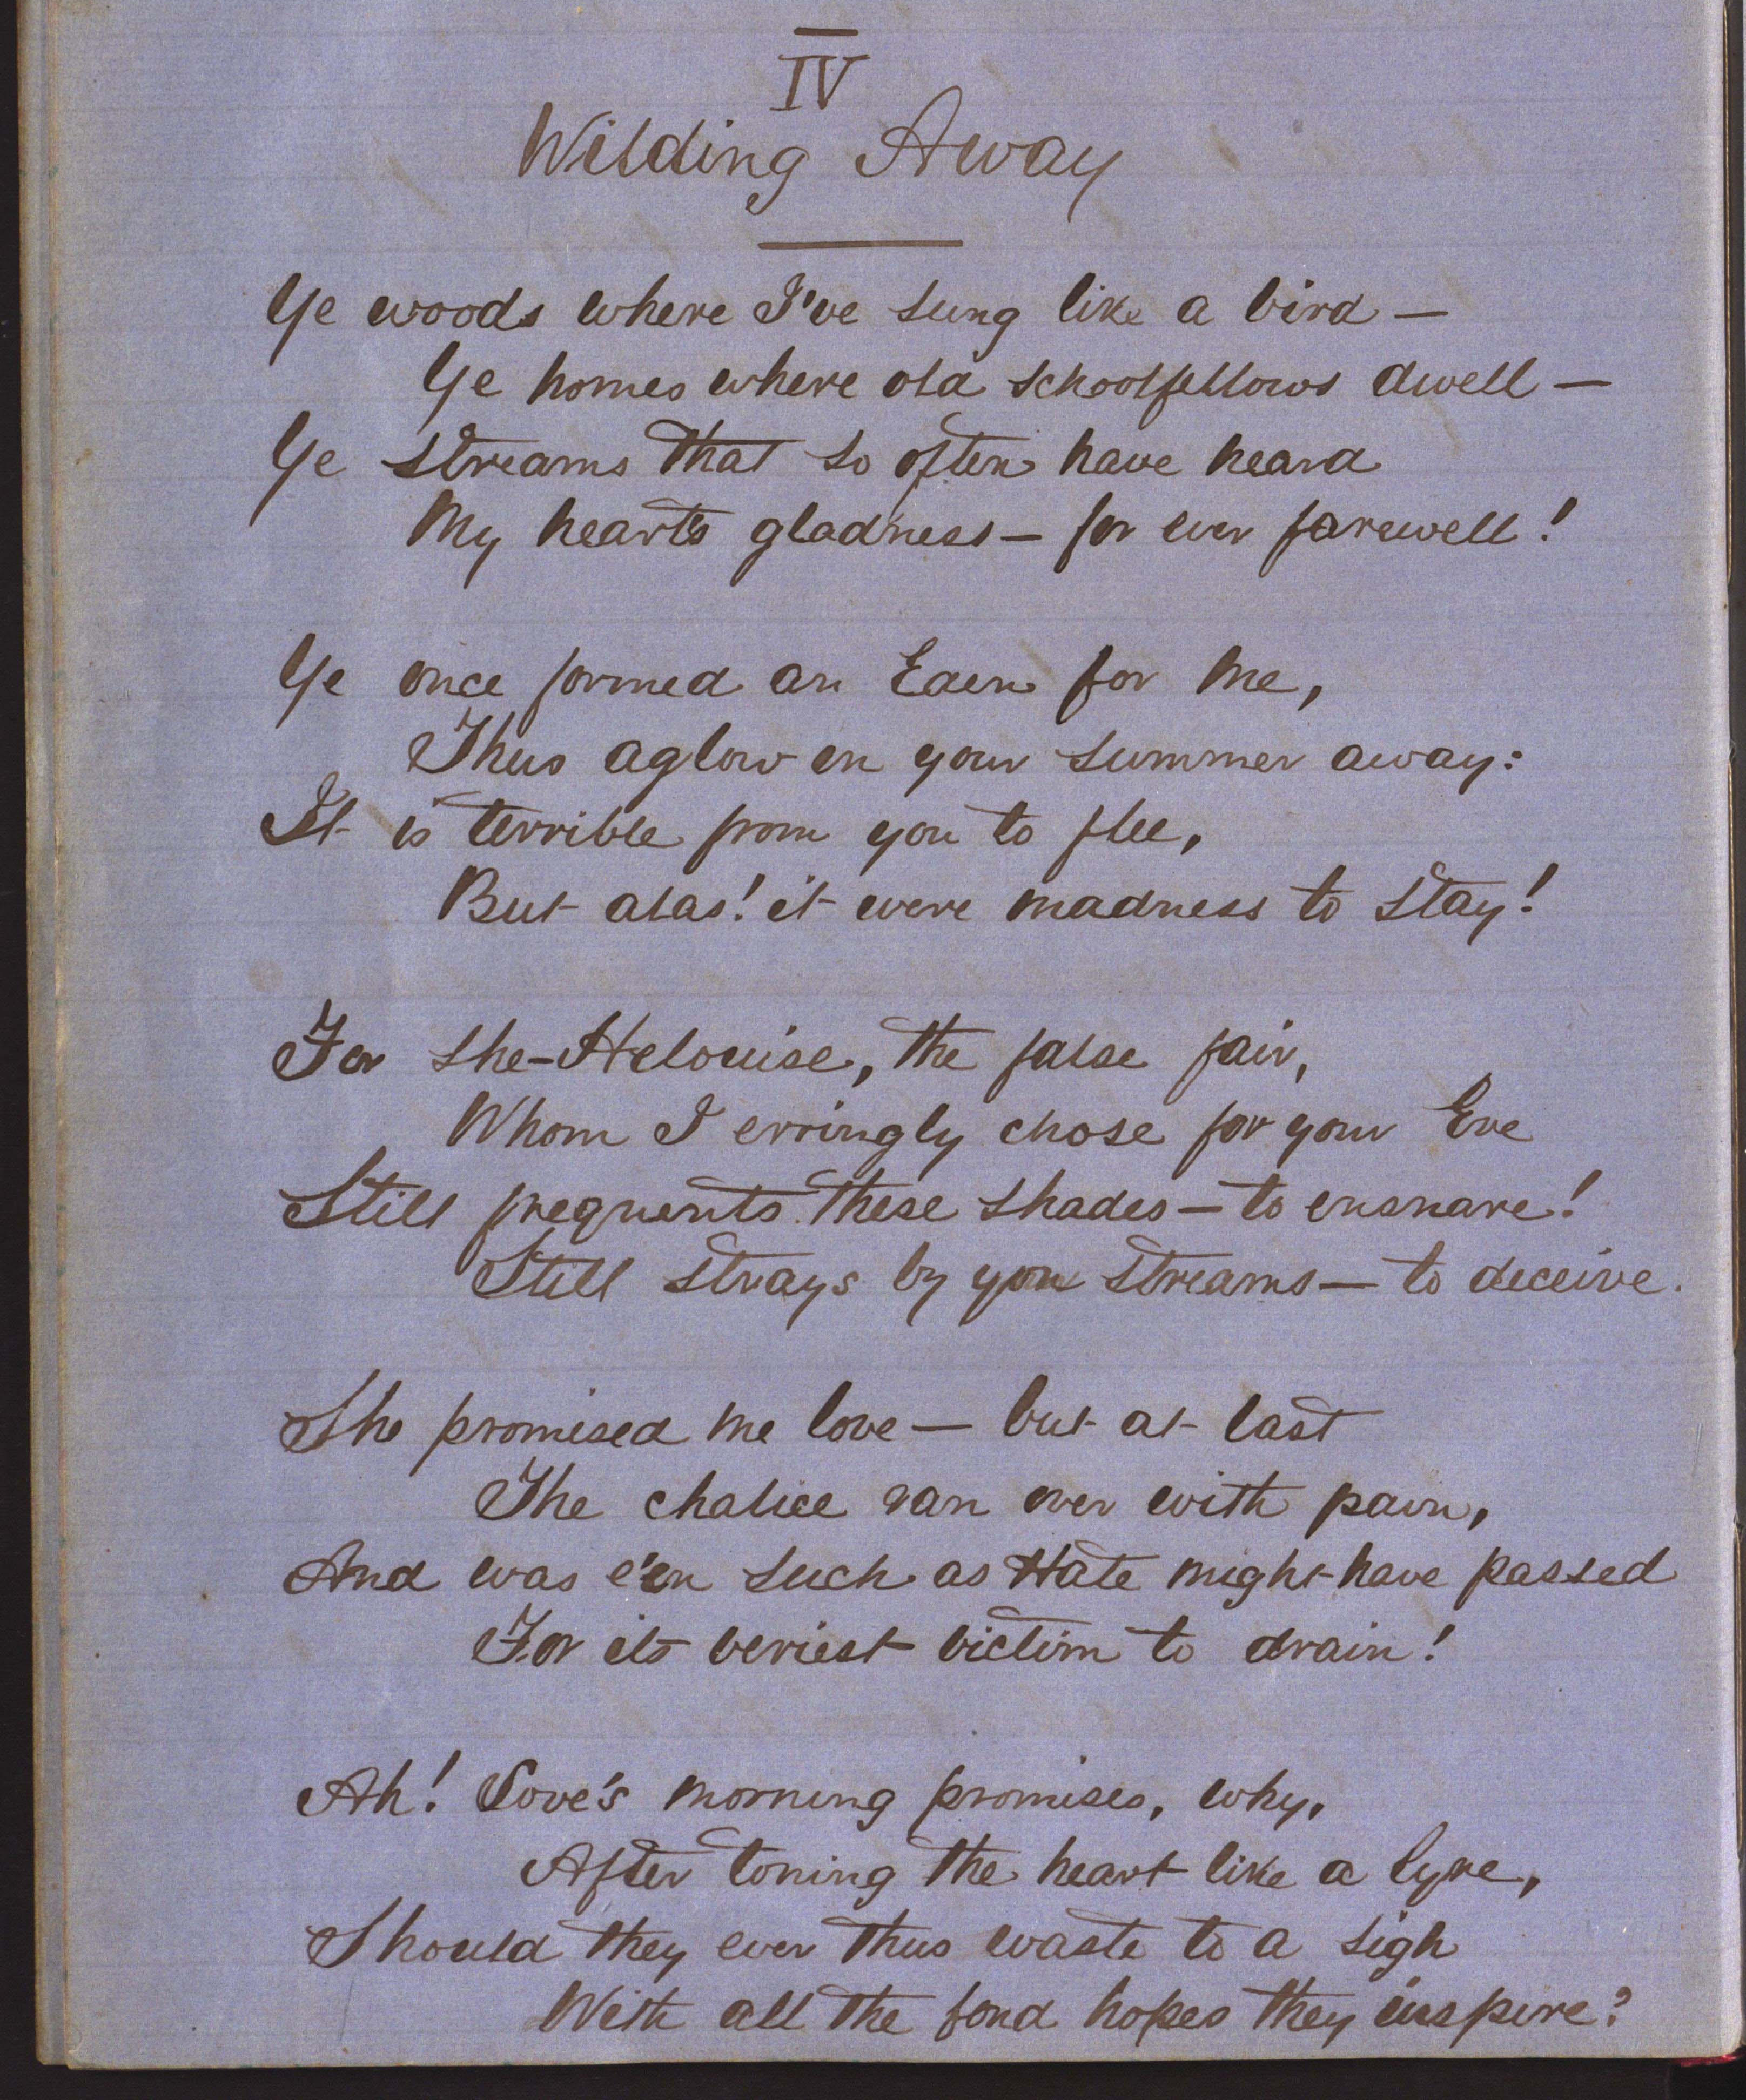 IV
Wilding Away
Ye woods where I've sung like a bird —
Ye homes where old schoolfellows dwell —
Ye streams that so often have heard
My heart's gladness — for ever farewell!
Ye once formed an Eden for me,
Thus aglow in your summer away:
It is terrible from you to flee,
But alas! it were madness to stay!
For she—Helouise, the false fair,
Whom I erringly chose for your Eve
Still frequents these shades — to ensnare!
Still strays by your streams — to deceive.
She promised me love — but at last
The chalice ran over with pain,
And was e'en such as Hate might have passed
For its veriest victim to drain!
Ah! Love's morning promises, why,
After toning the heart like a lyre,
Should they ever thus waste to a sigh
With all the fond hopes they inspire?